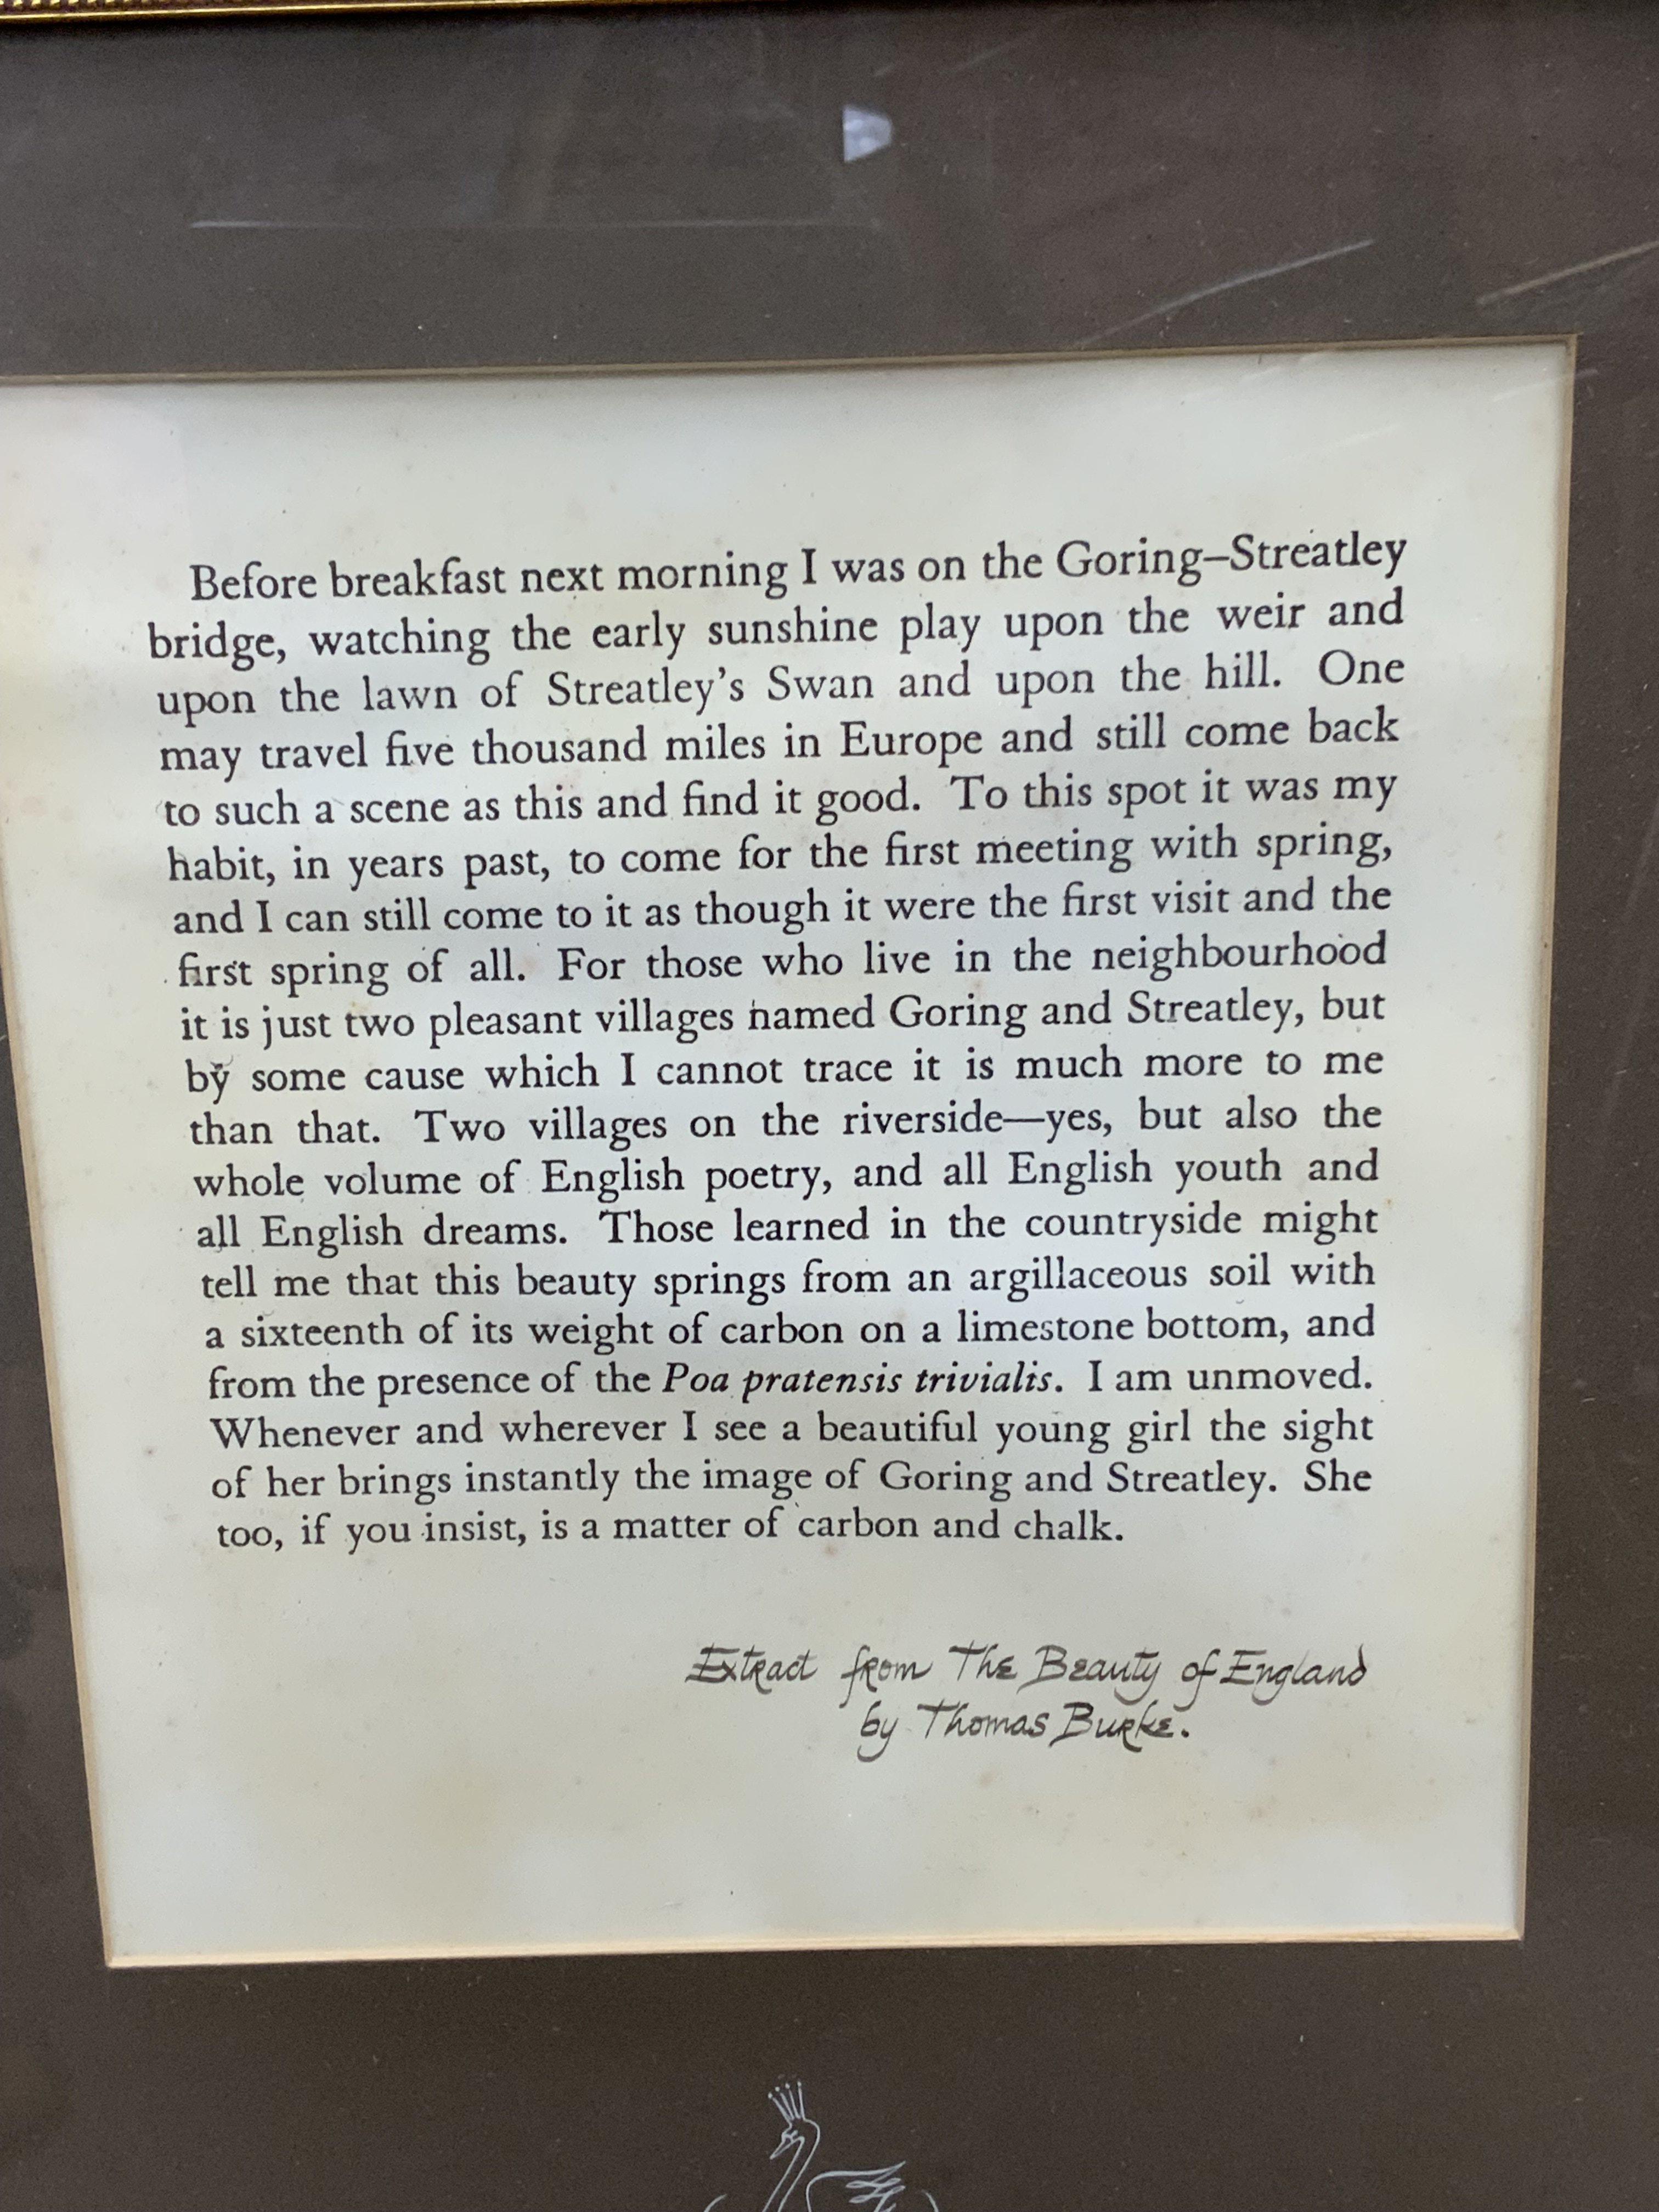 Before breakfast next morning I was on the Goring–Streatley
bridge, watching the early sunshine play upon the weir and
upon the lawn of Streatley's Swan and upon the hill. One
may travel five thousand miles in Europe and still come back
to such a scene as this and find it good. To this spot it was my
habit, in years past, to come for the first meeting with spring,
and I can still come to it as though it were the first visit and the
first spring of all. For those who live in the neighbourhood
it is just two pleasant villages named Goring and Streatley, but
by some cause which I cannot trace it is much more to me
than that. Two villages on the riverside—yes, but also the
whole volume of English poetry, and all English youth and
all English dreams. Those learned in the countryside might
tell me that this beauty springs from an argillaceous soil with
a sixteenth of its weight of carbon on a limestone bottom, and
from the presence of the Poa pratensis trivialis. I am unmoved.
Whenever and wherever I see a beautiful young girl the sight
of her brings instantly the image of Goring and Streatley. She
too, if you insist, is a matter of carbon and chalk.
Extract from The Beauty of England
by Thomas Burke.